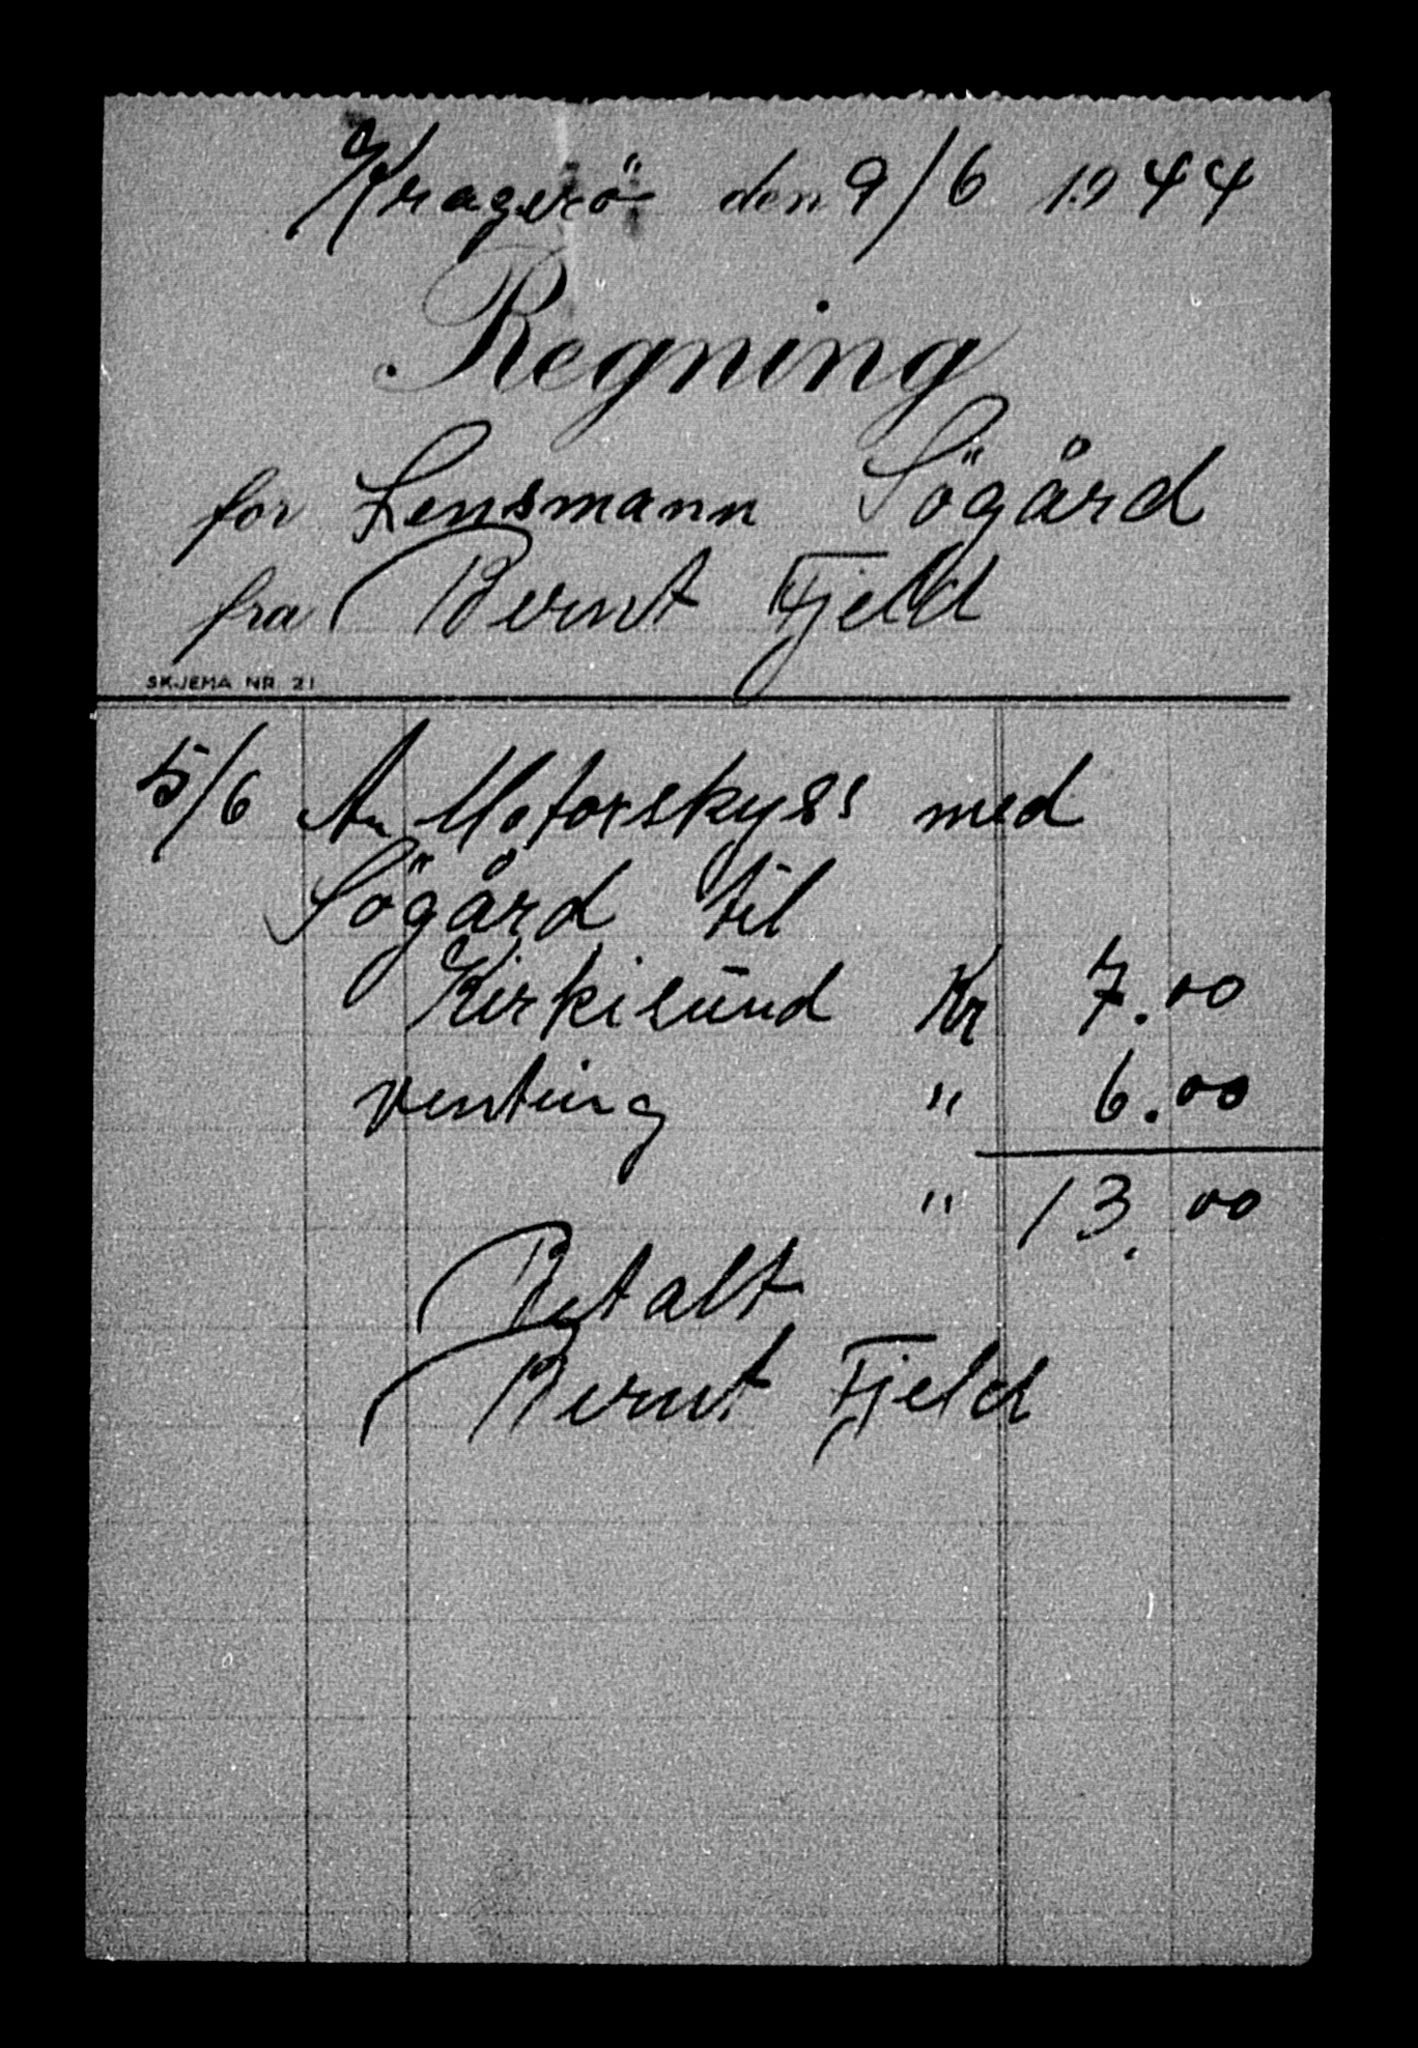 Kragerö den 9/6 1944
Regning
for Lensmann Sögård
fra Bernt Fjeld
SKJEMA NR 21
5/6 An Motorskyss med
Sögård til
Kirkesund Kr 7.00
venting " 6.00
" 13.00
Betalt
Bernt Fjeld